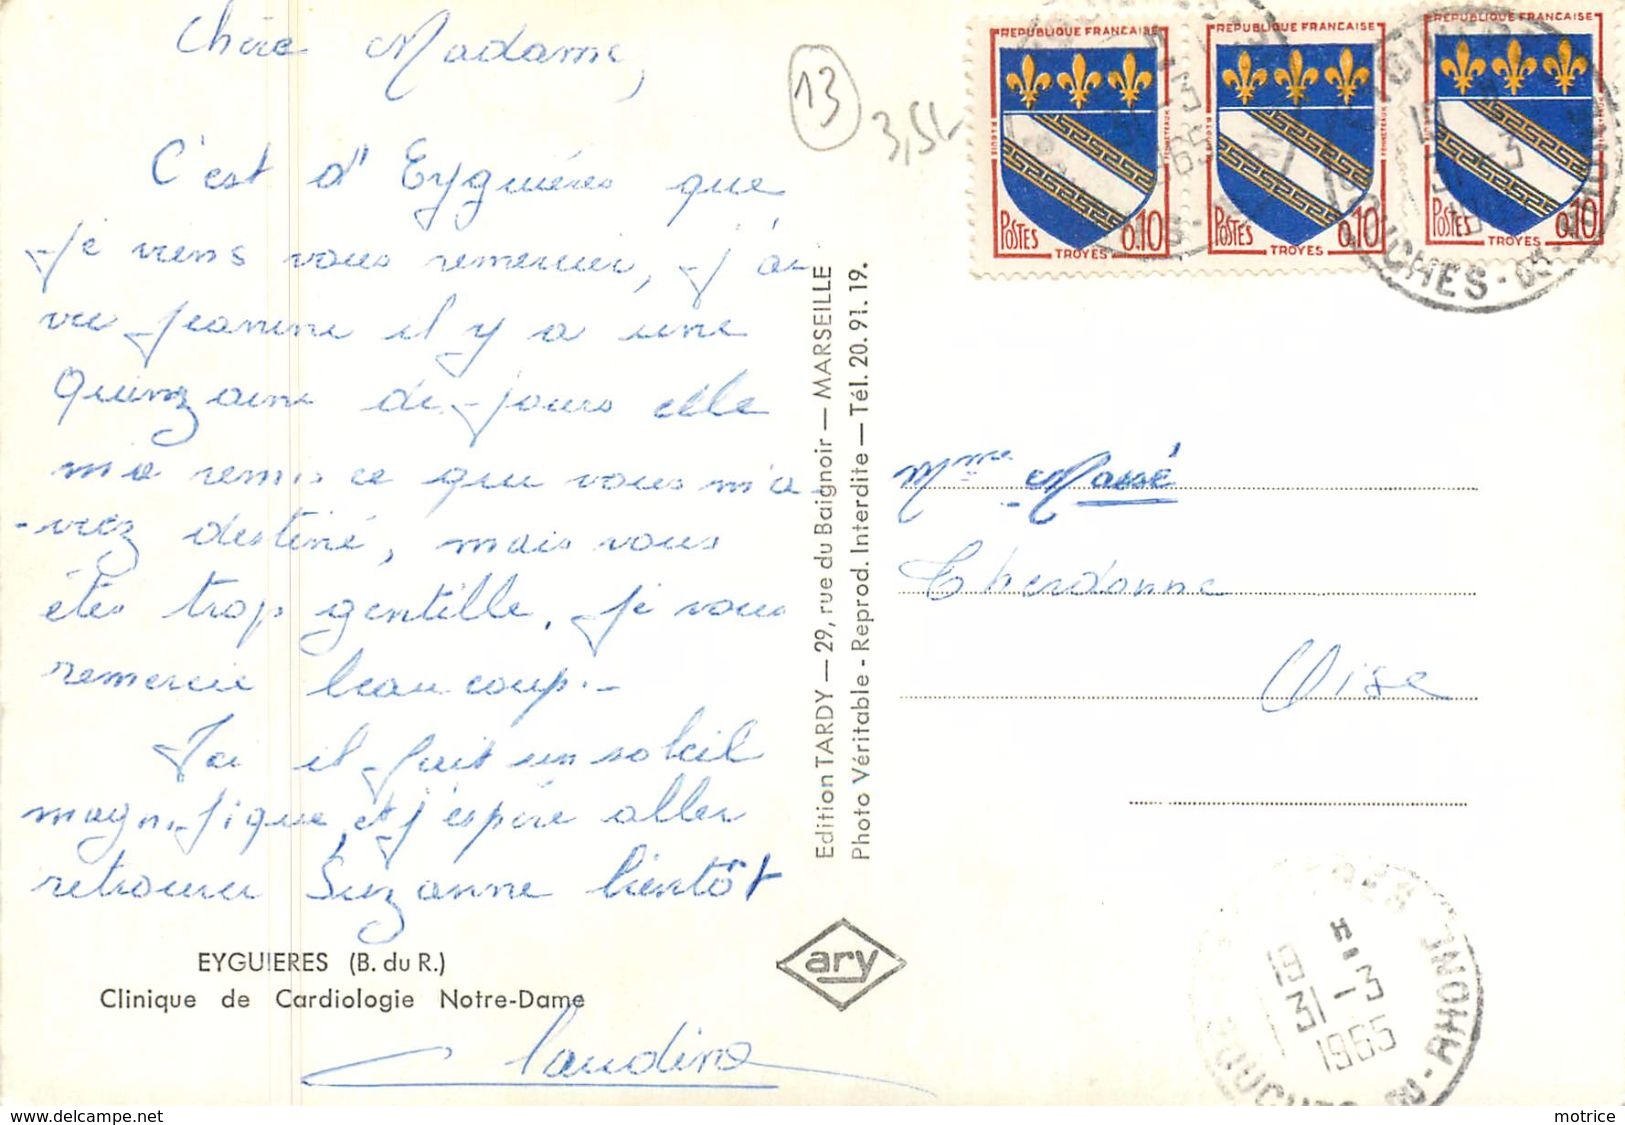 Chère Madame,
C'est d'Eyguières que
je viens vous remercier, j'ai
vu Jeanine il y a une
Quinzaine de jours elle
m'a remis ce que vous m'a
-viez destiné, mais vous
êtes trop gentille. Je vous
remercie beaucoup.-
Ici il fait un soleil
magnifique, et j'espère aller
retrouver Suzanne bientôt
EYGUIERES (B. du R.)
Clinique de Cardiologie Notre-Dame
Claudine
13
3,5
Edition TARDY — 29, rue du Baignoir — MARSEILLE
Photo Véritable - Reprod. Interdite — Tél. 20. 91. 19.
ary
REPUBLIQUE FRANÇAISE
POSTES
0,10
TROYES
REPUBLIQUE FRANÇAISE
POSTES
0,10
TROYES
REPUBLIQUE FRANÇAISE
POSTES
0,10
TROYES
BOUCHES-DU-RHONE
Mme Massé
Therdonne
Oise
19 H
31-3
1965
BOUCHES-DU-RHONE
www.delcampe.net
motrice